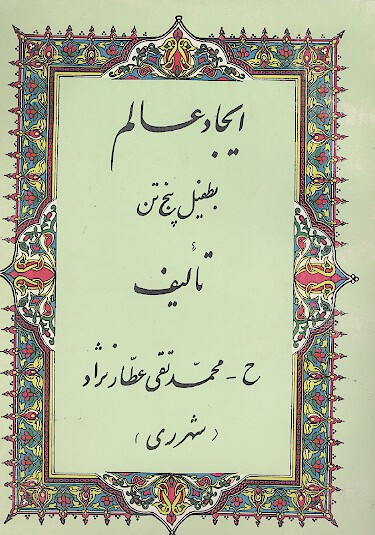 ایجاد عالم
بطفیل پنج تن
تألیف
ح - محمد تقی عطار نژاد
(شهر ری)